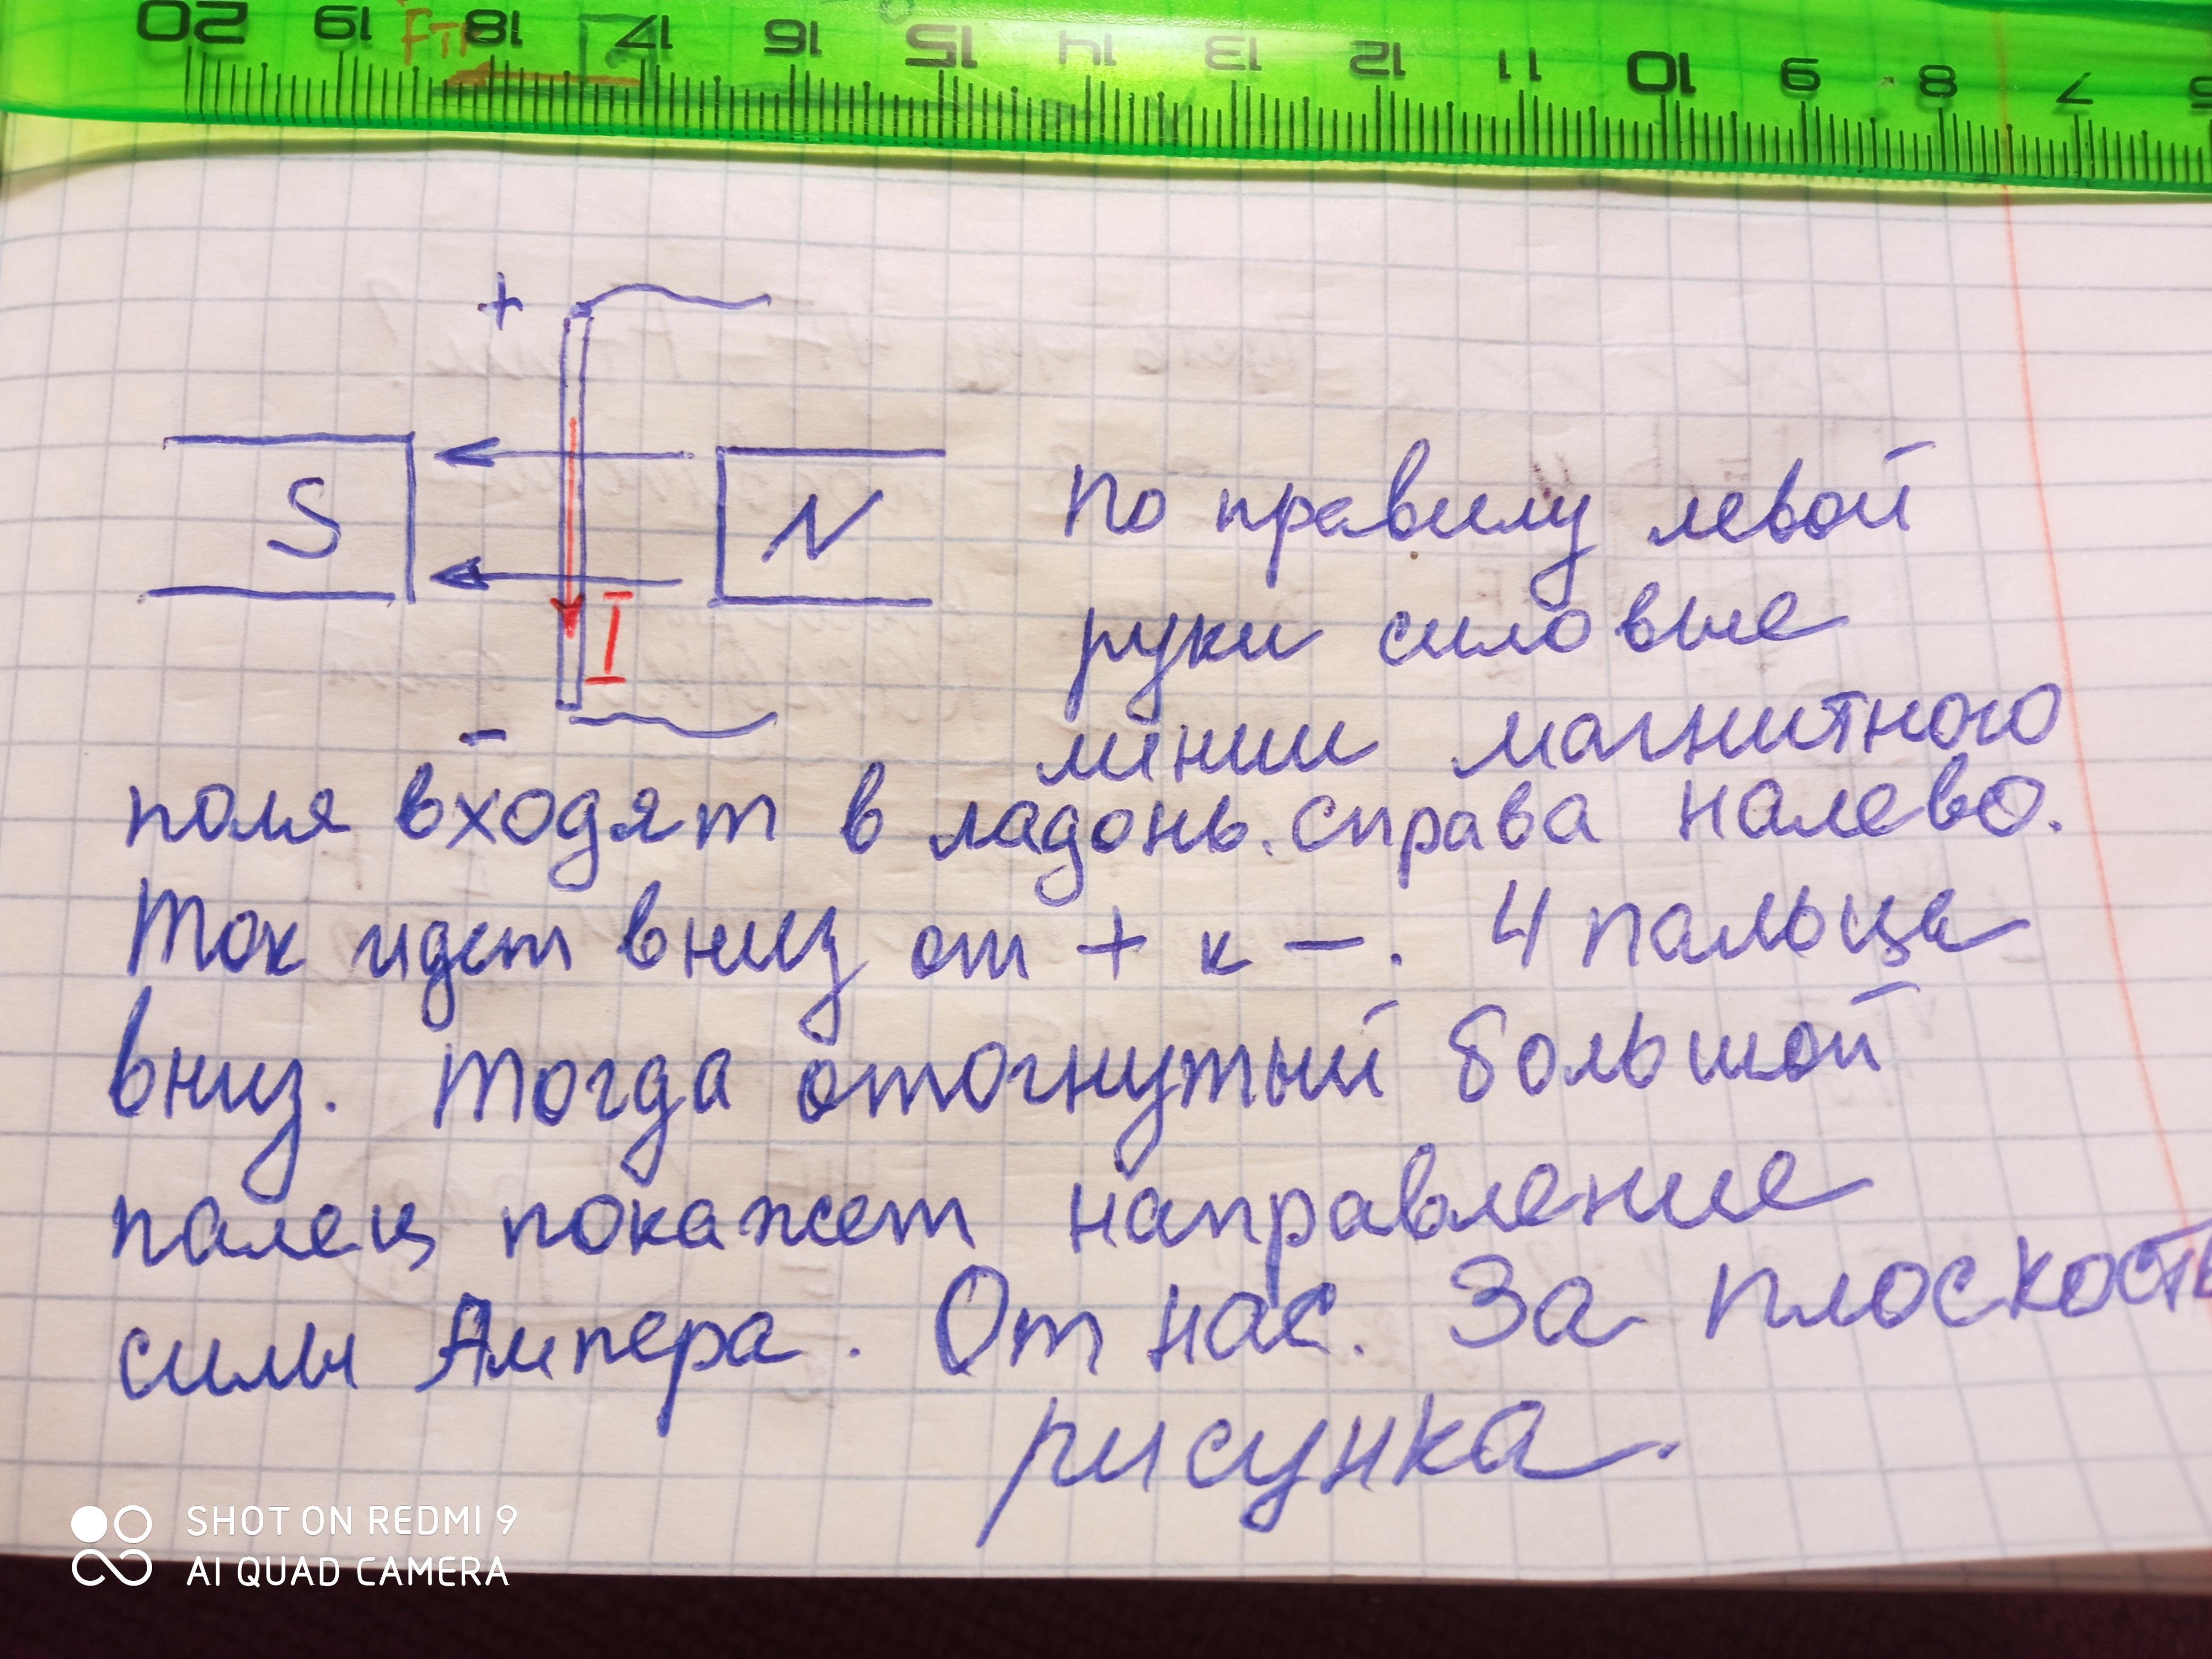 20 19 18 17 16 15 14 13 12 11 10 9 8 7
+
S
N
I
-
По правилу левой
руки силовые
линии магнитного
поля входят в ладонь. справа налево.
Ток идет вниз от + к –. 4 пальца
вниз. Тогда отогнутый большой
палец покажет направление
силы Ампера. От нас. За плоскость
рисунка.
SHOT ON REDMI 9
AI QUAD CAMERA